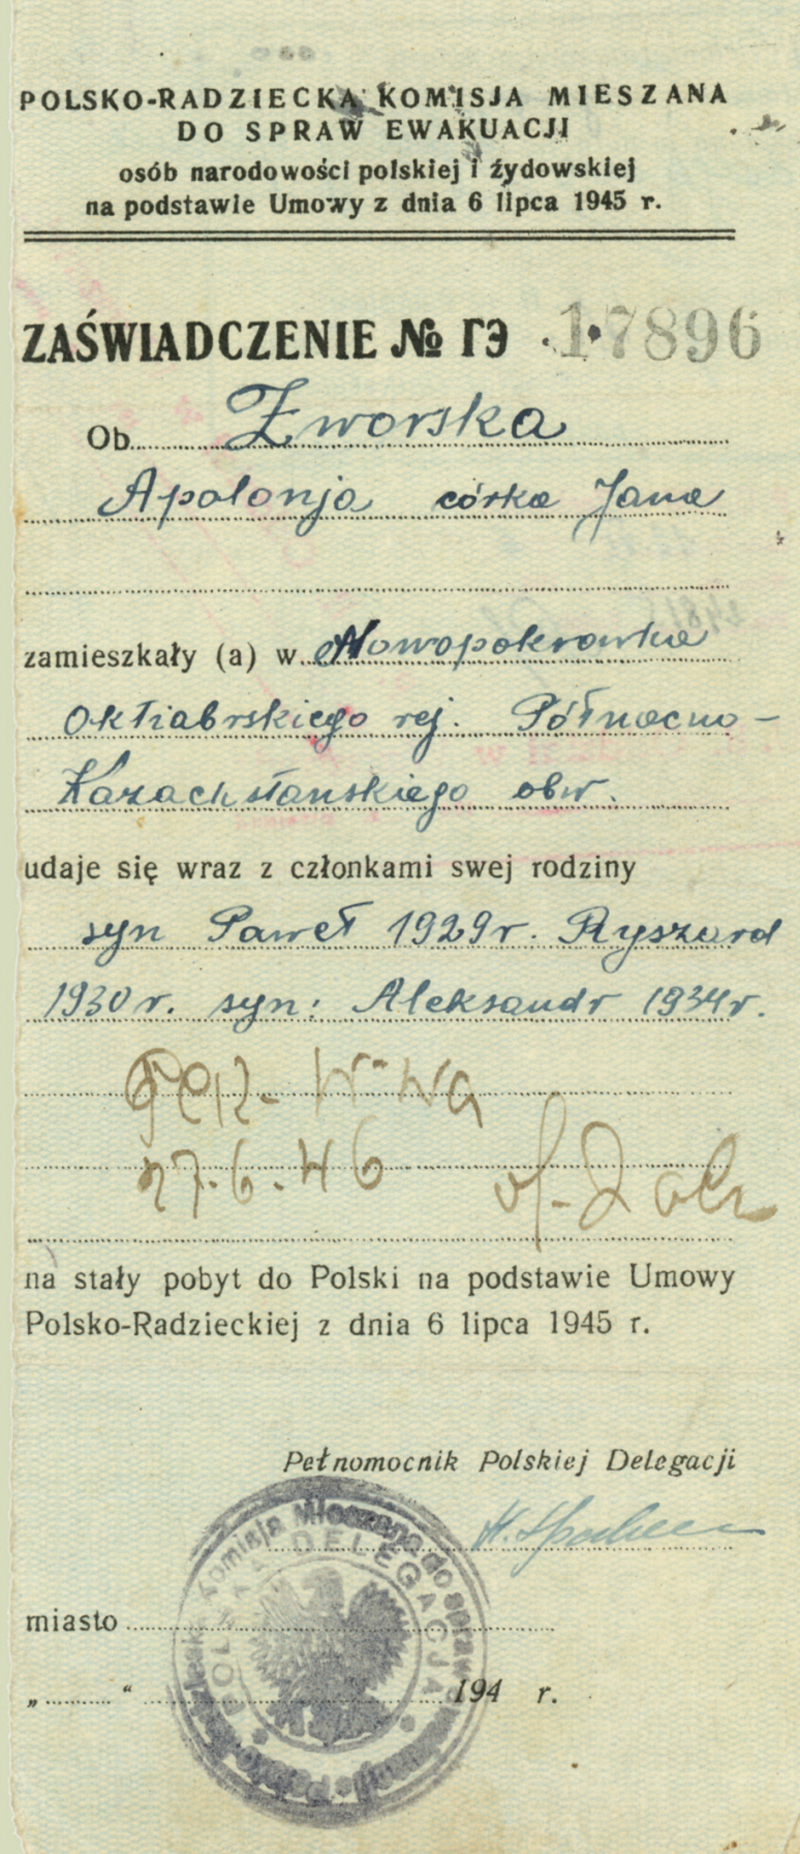 POLSKO-RADZIECKA KOMISJA MIESZANA
DO SPRAW EWAKUACJI
osób narodowości polskiej i żydowskiej
na podstawie Umowy z dnia 6 lipca 1945 r.
ZAŚWIADCZENIE № ГЭ 17896
Ob. Zworska
Apolonja córka Jana
zamieszkały (a) w Nowopokrowka
Oktiabrskiego rej. Północno-
Kazachstanskiego obw.
udaje się wraz z członkami swej rodziny
syn Paweł 1929 r. Ryszard
1930 r. syn: Aleksandr 1934 r.
W-wa
27.6.46
na stały pobyt do Polski na podstawie Umowy
Polsko-Radzieckiej z dnia 6 lipca 1945 r.
Pełnomocnik Polskiej Delegacji
Komisja Mieszana do spraw
POLSKA DELEGACJA
miasto
„ “ 194 r.